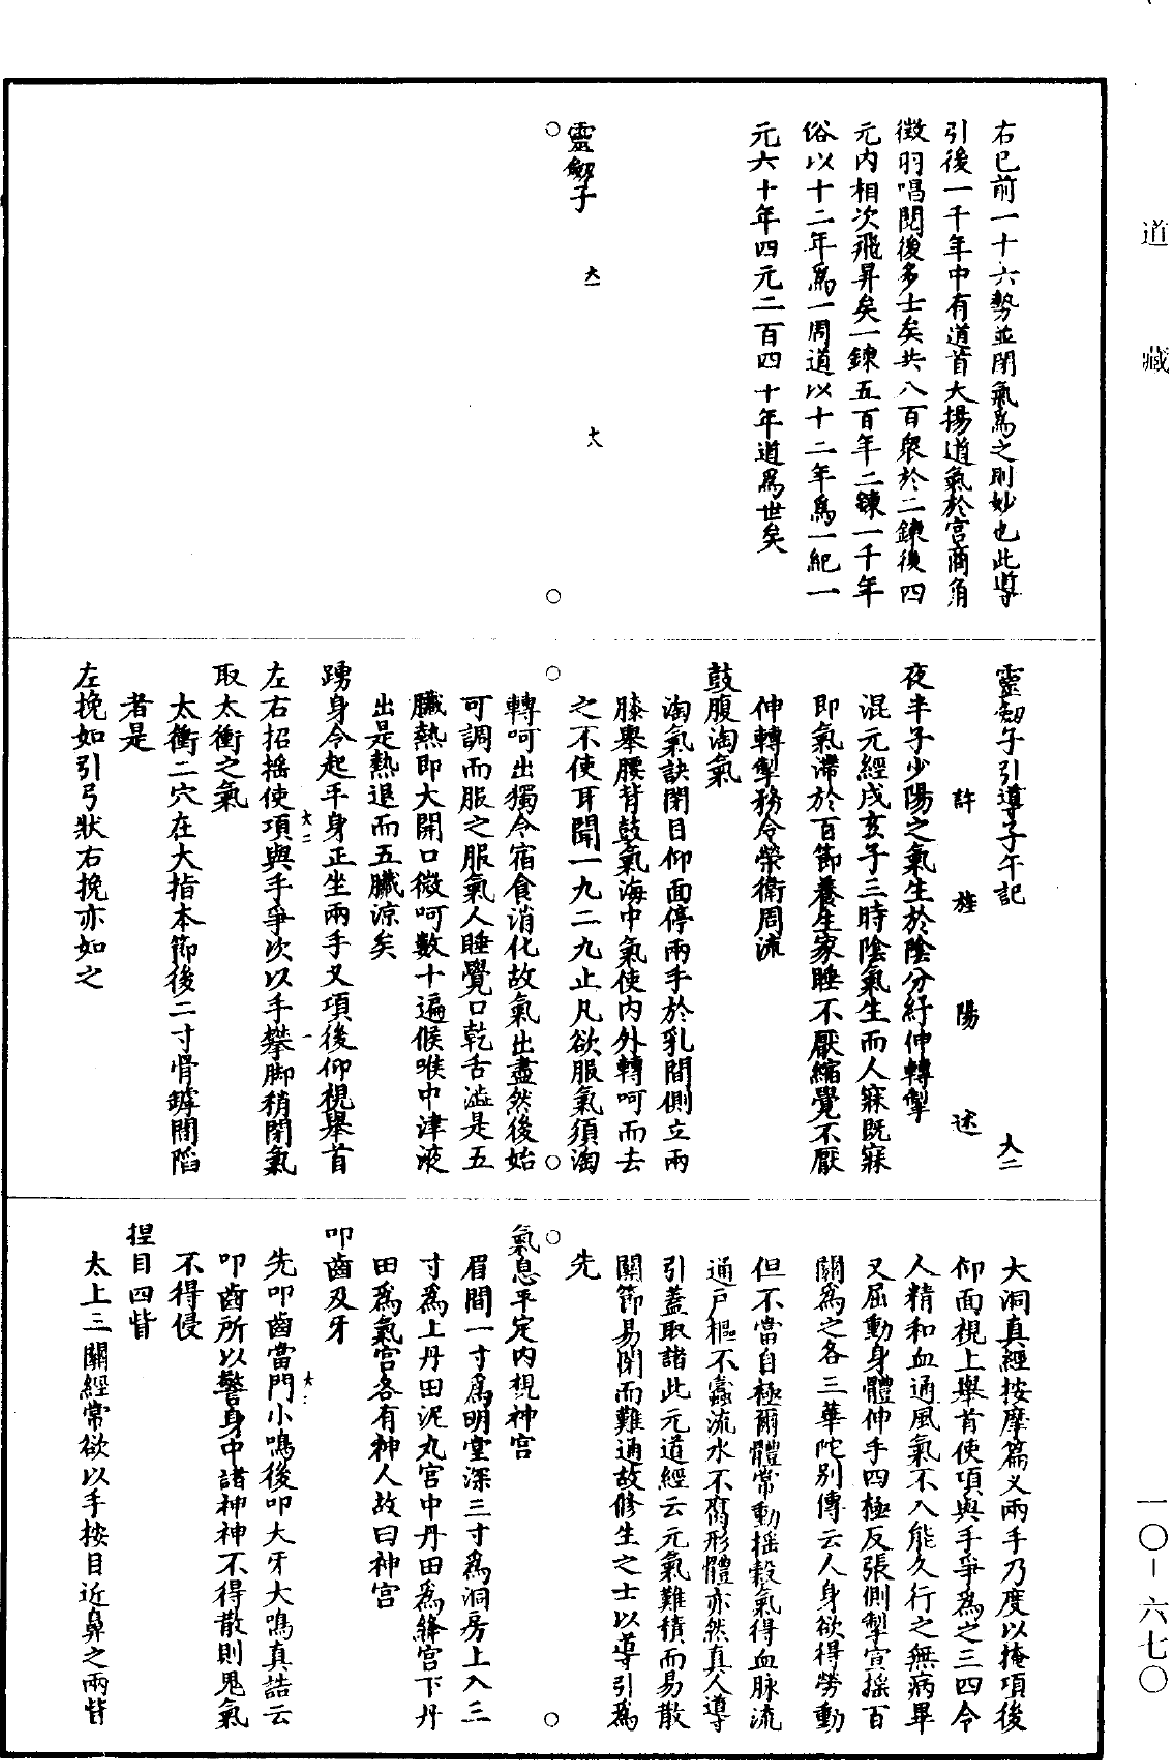 道藏
右已前一十六勢並閉氣為之則妙也此導
引後一千年中有道首大揚道氣於宮商角
徵羽唱閱後多士矣共八百眾於二鍊後四
元內相次飛昇矣一鍊五百年二鍊一千年
俗以十二年為一周道以十二年為一紀一
元六十年四元二百四十年道為世矣
靈劒子
靈劒子引導子午記
許旌陽述
夜半子少陽之氣生於陰分紓伸轉掣
混元經戌亥子三時陰氣生而人寐既寐
即氣滯於百節養生家睡不厭縮覺不厭
伸轉掣務令榮衛周流
鼓腹淘氣
淘氣訣閉目仰面停兩手於乳間側立兩
膝舉腰背鼓氣海中氣使內外轉呵而去
之不使耳聞一九二九止凡欲服氣須淘
轉呵出獨令宿食消化故氣出盡然後始
可調而服之服氣人睡覺口乾舌澁是五
臟熱即大開口微呵數十遍候喉中津液
出是熱退而五臟涼矣
踴身令起平身正坐兩手叉項後仰視舉首
左右招搖使項與手爭次以手攀脚稍閉氣
取太衝之氣
太衝二穴在大指本節後二寸骨罅間陷
者是
左挽如引弓狀右挽亦如之
大洞真經按摩篇叉兩手乃度以掩項後
仰面視上舉首使項與手爭為之三四令
人精和血通風氣不入能久行之無病畢
又屈動身體伸手四極反張側掣宣搖百
關為之各三華陀別傳云人身欲得勞動
但不當自極爾體常動搖穀氣得血脉流
通戶樞不蠹流水不腐形體亦然真人導
引蓋取諸此元道經云元氣難積而易散
關節易閉而難通故修生之士以導引為
先
氣息平定內視神宮
眉間一寸為明堂深三寸為洞房上入三
寸為上丹田泥丸宮中丹田為絳宮下丹
田為氣宮各有神人故曰神宮
叩齒及牙
先叩齒當門小鳴後叩大牙大鳴真誥云
叩齒所以警身中諸神神不得散則鬼氣
不得侵
捏目四眥
太上三關經常欲以手按目近鼻之兩眥
一〇—六七〇